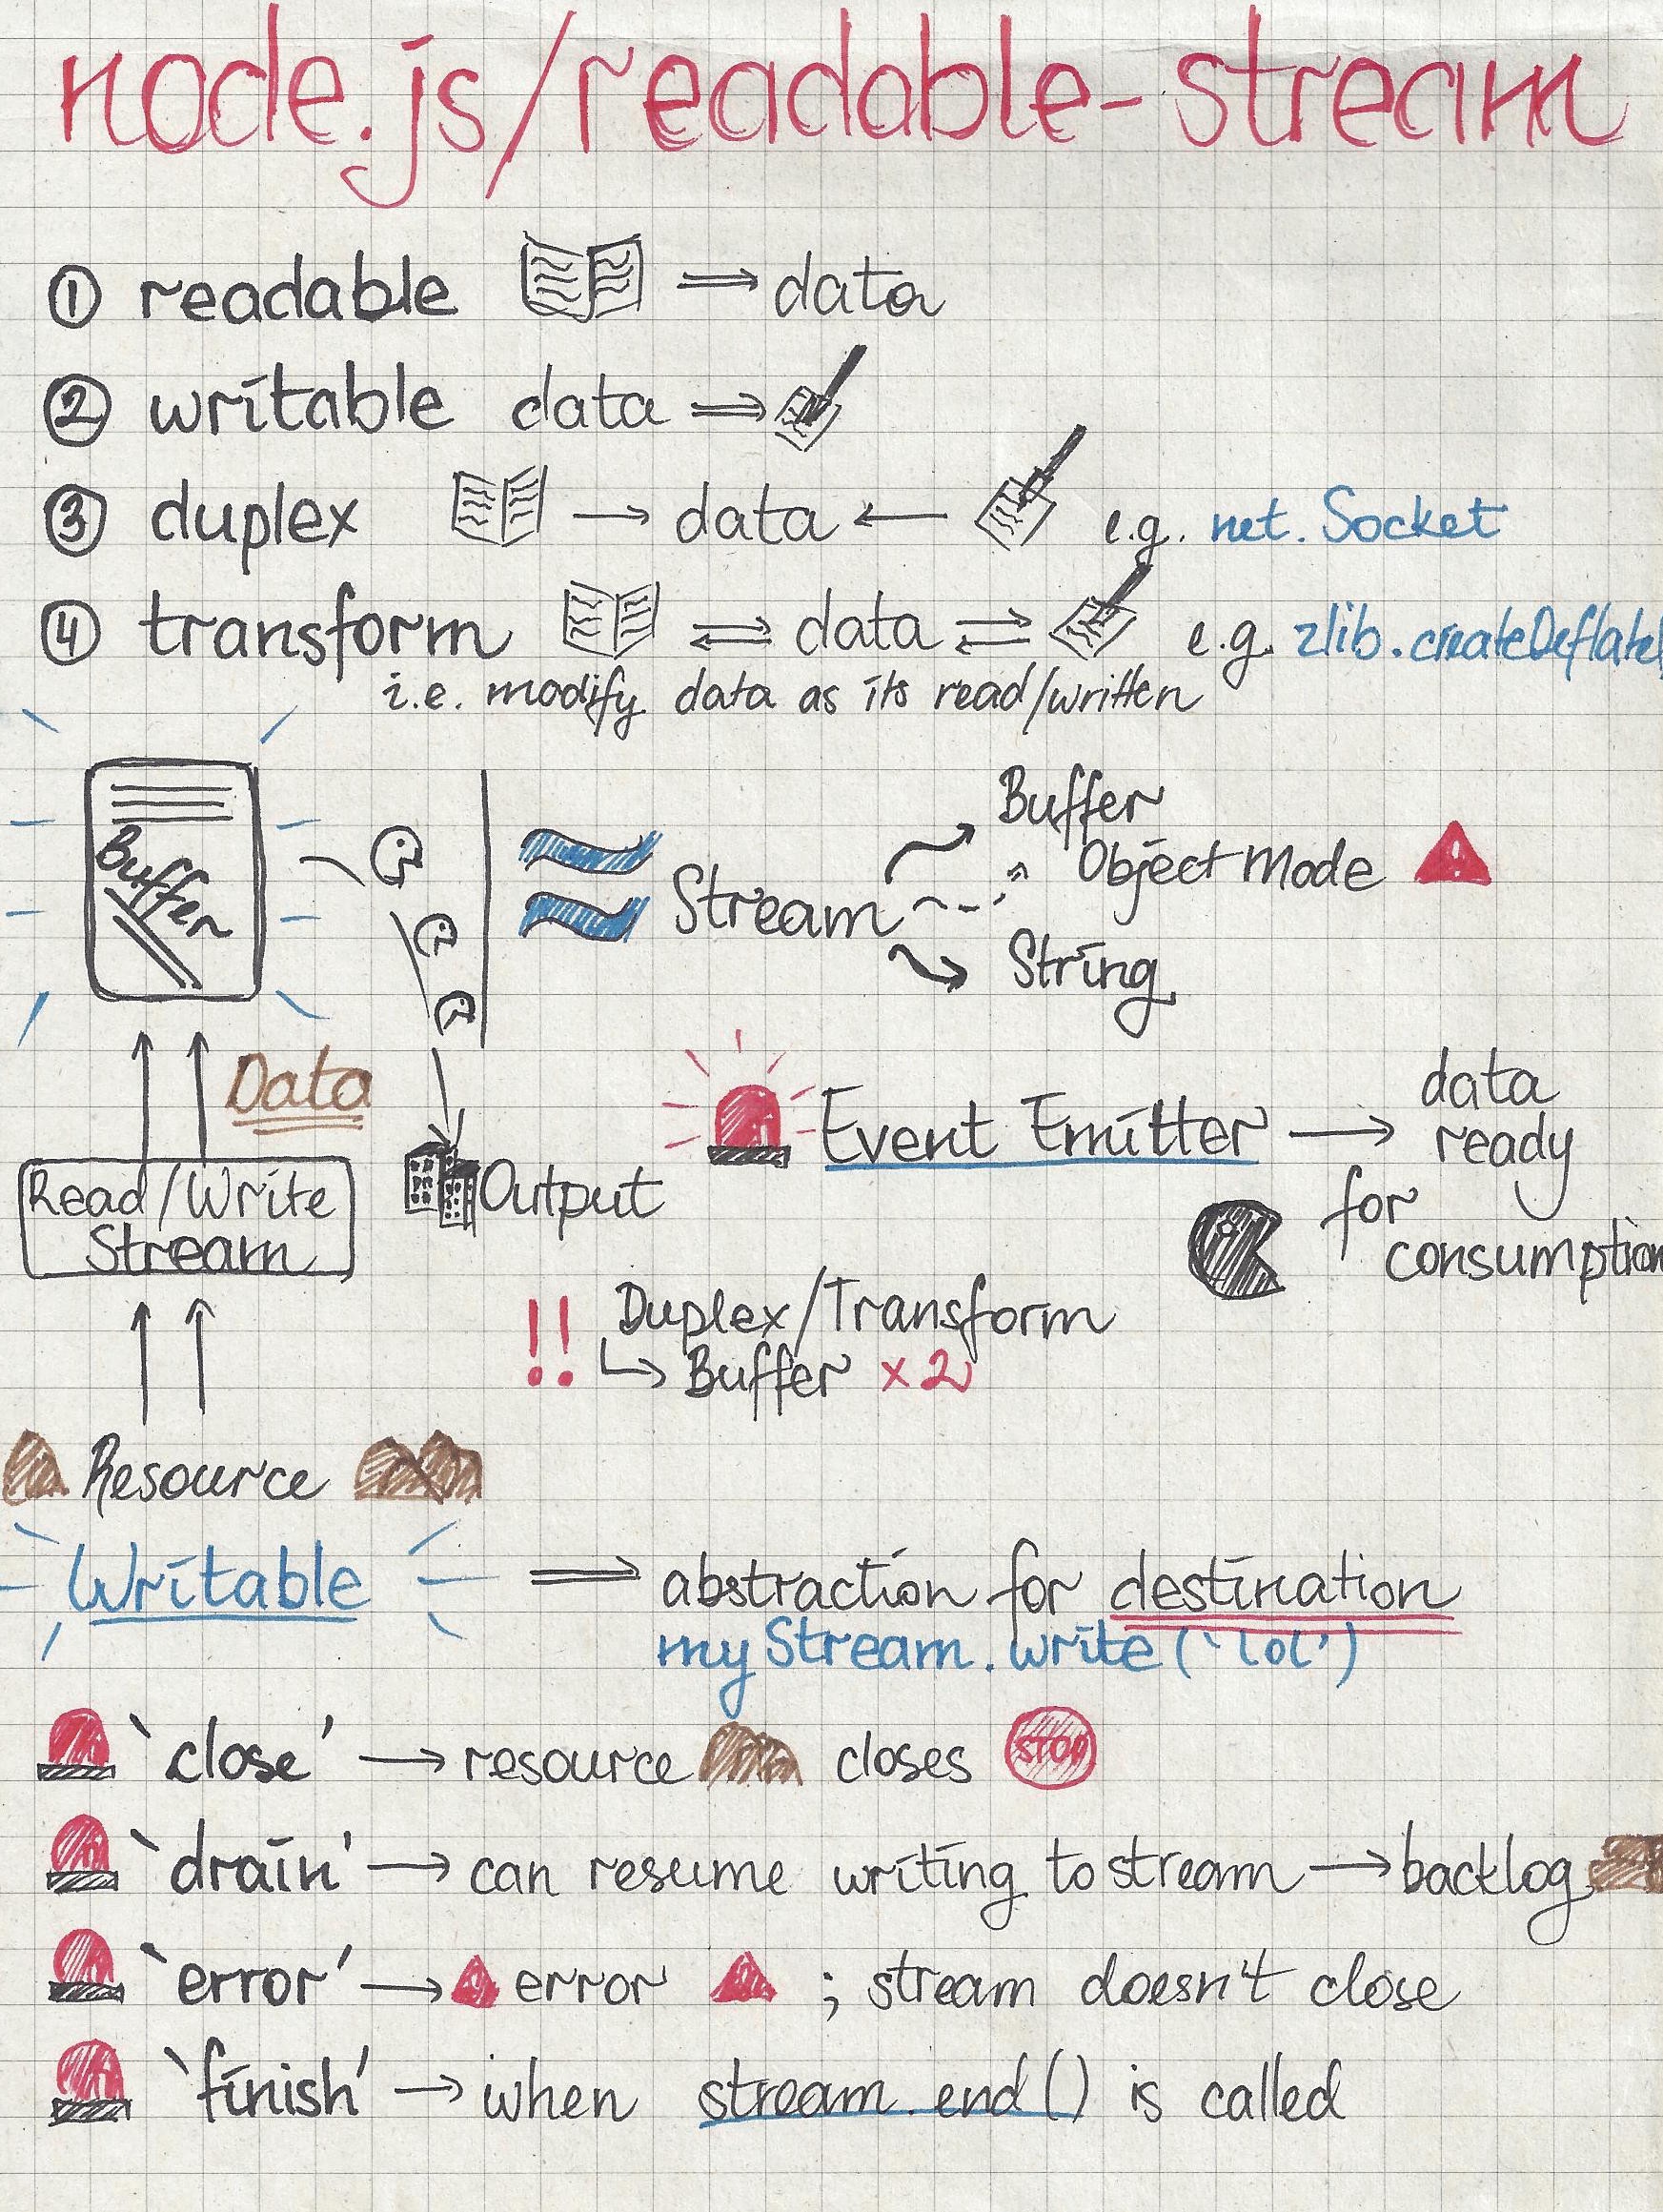 node.js/readable-stream
① readable ⇒ data
② writable data ⇒
③ duplex → data ← e.g. net.Socket
④ transform ⇌ data ⇌ e.g. zlib.createDeflate
i.e. modify data as its read/written
Buffer
Stream
Buffer
Object Mode
String
Data
Read/Write
Stream
Output
Event Emitter → data
ready
for
consumption
!! Duplex/Transform
↳ Buffer x2
Resource
Writable ⇒ abstraction for destination
myStream.write(‘lol’)
‘close’ → resource closes STOP
‘drain’ → can resume writing to stream → backlog
‘error’ → error ; stream doesn't close
‘finish’ → when stream.end() is called